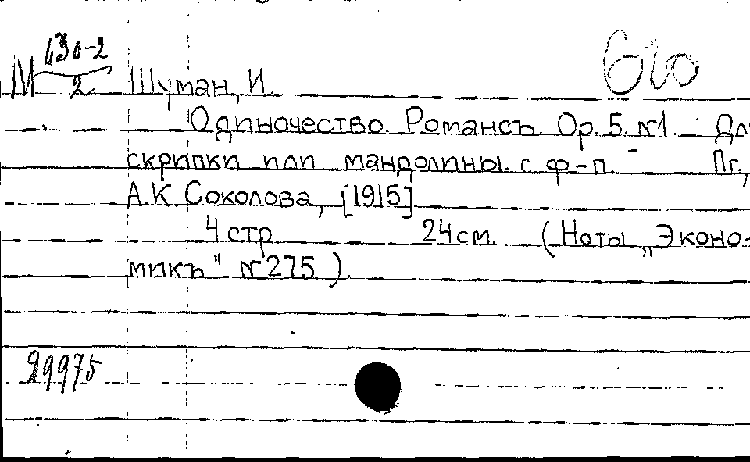 М 430-2
2
Шуман, И.
био
Одиночество. Романсъ. Ор. 5. №1. – Дл
скрипки или мандолины с ф-п. – Пг.,
А.К. Соколова, [1915]
4 стр. 24 см. (Ноты „Эконо-
микъ" №275).
29975